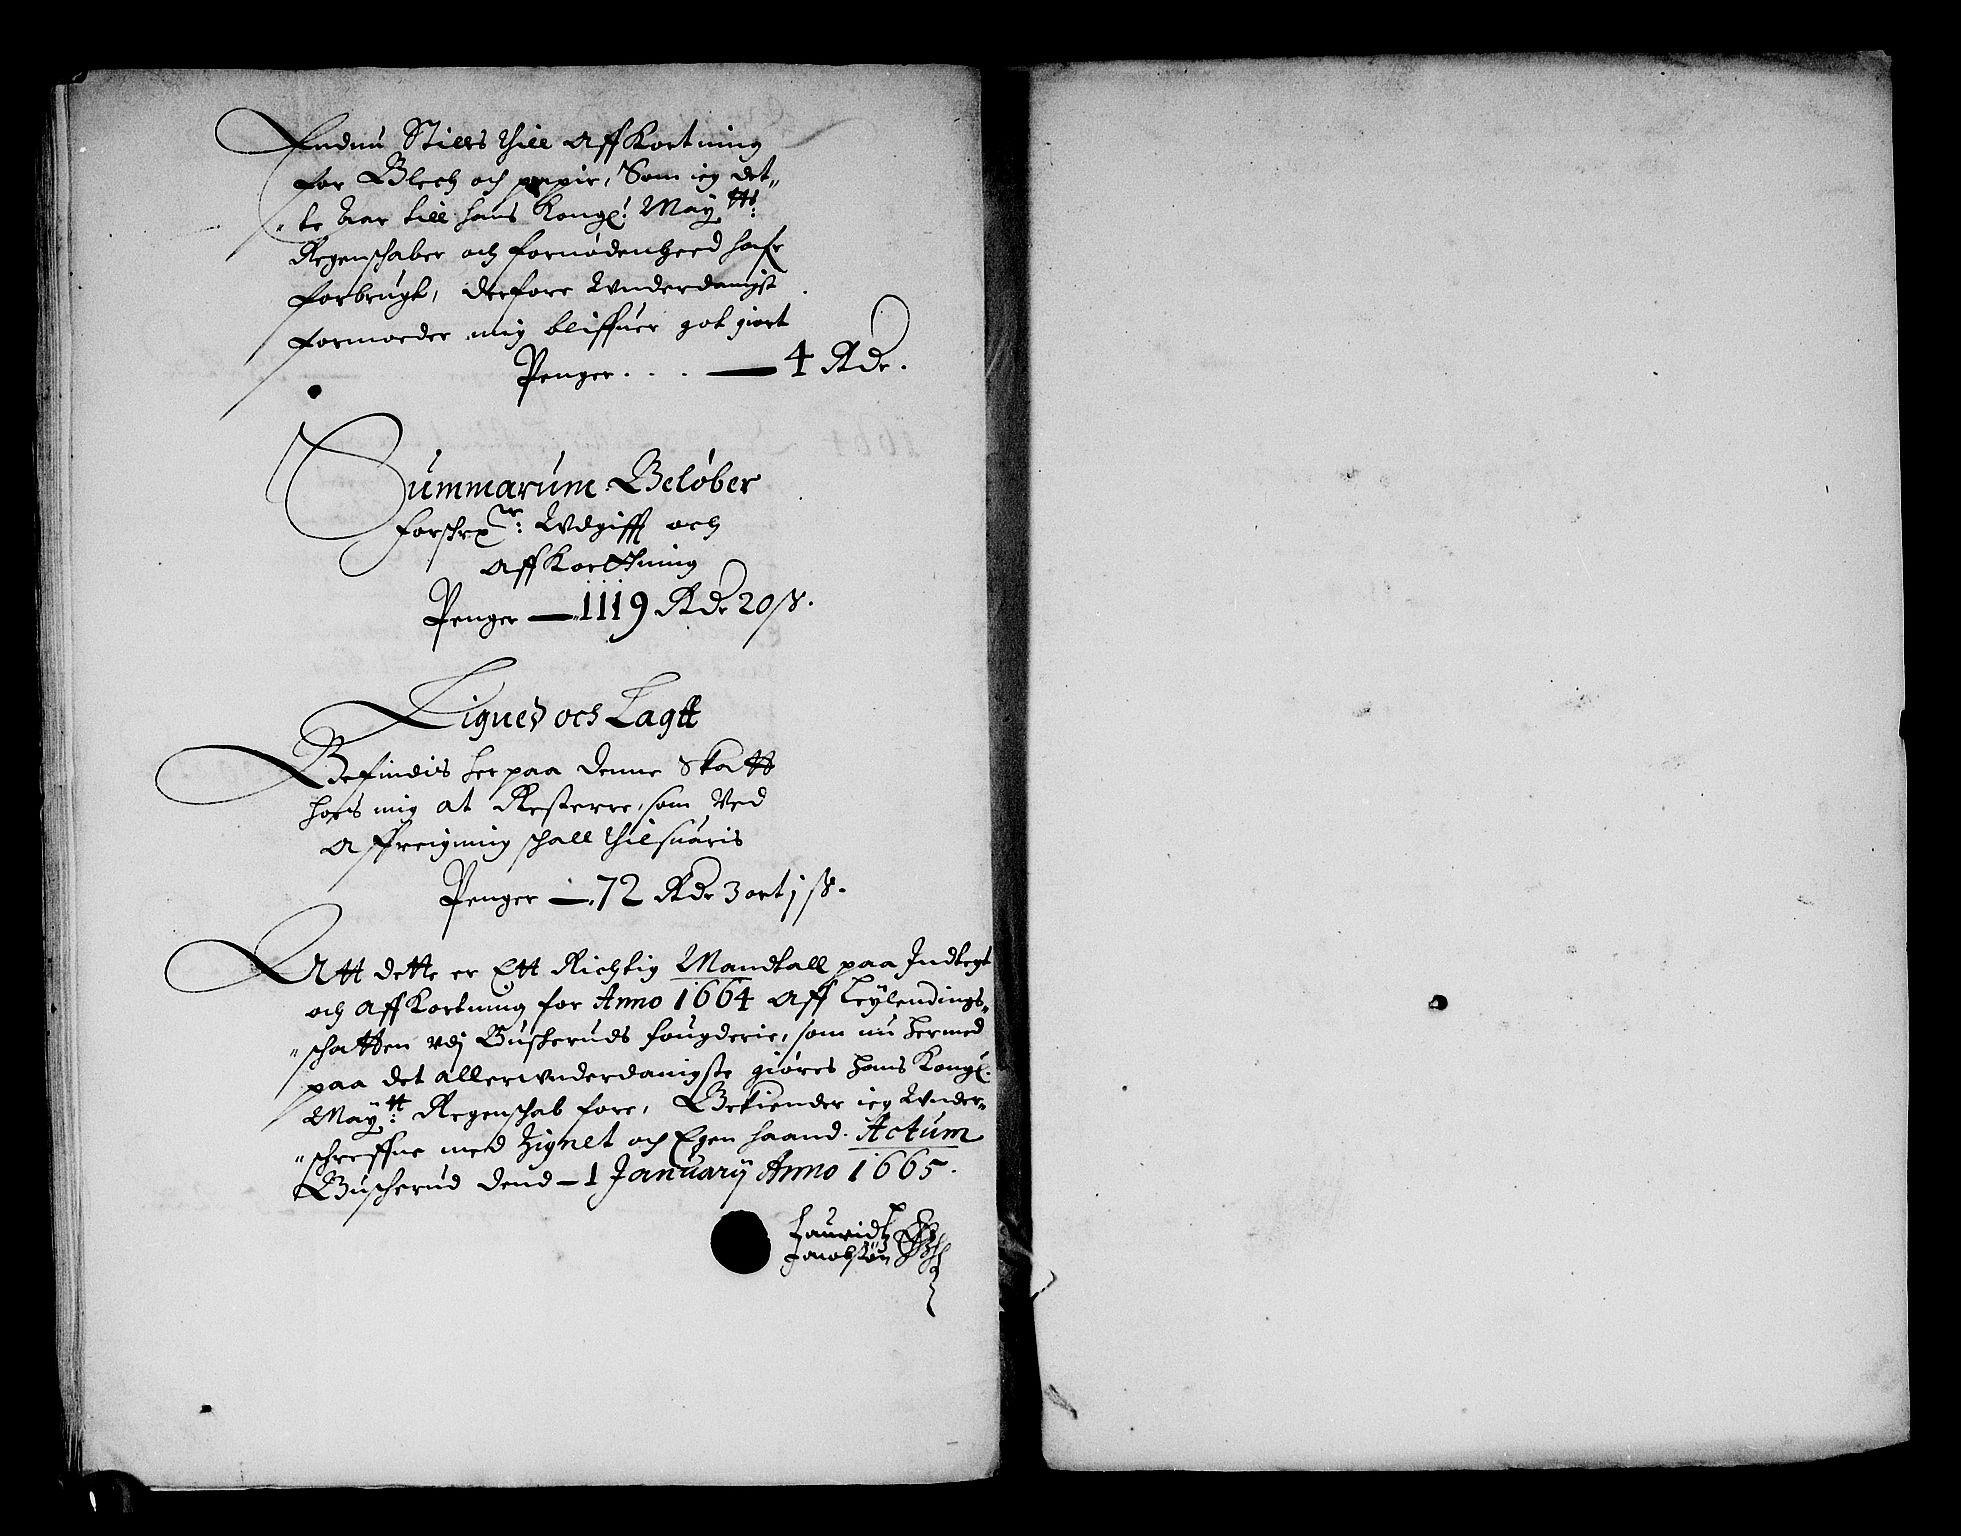 Endnu Stilles thill affKortning
for Blech och papir, Som ieg det„
„te Aar till hans Kongl: May tts:
Regenschaber och fornødenheed hafr
forbrugt, derfore Vnderdanigst
formoeder mig bliffuer got giort
Penger . . . — 4 Rdr.
Summarum Beløber
forschr ne: Vdgifft och
affKorttning
Penger — 1119 Rdr 20 ß.
Lignet och Lagtt
Befindis her paa denne Skatt
hoes mig at Resterre, som Ved
Affreigning schall thilsuaris
Penger — 72 Rdr 3 ort 1 ß.
Att dette er Ett Richtig Mandtall paa Indtegt
och affKortning for Anno 1664 aff Leylendings„
„schatten vdj Buskeruds fougderie, som nu hermed
paa det allervnderdanigste giøres hans Kongl.
May tt: Regenschab fore, Bekiender ieg Vnder„
„schreffne med Zignet och Egen haand. Actum
Buscherud dend — 1 Januarij Anno 1665.
Lauridtz
Jacobsøn